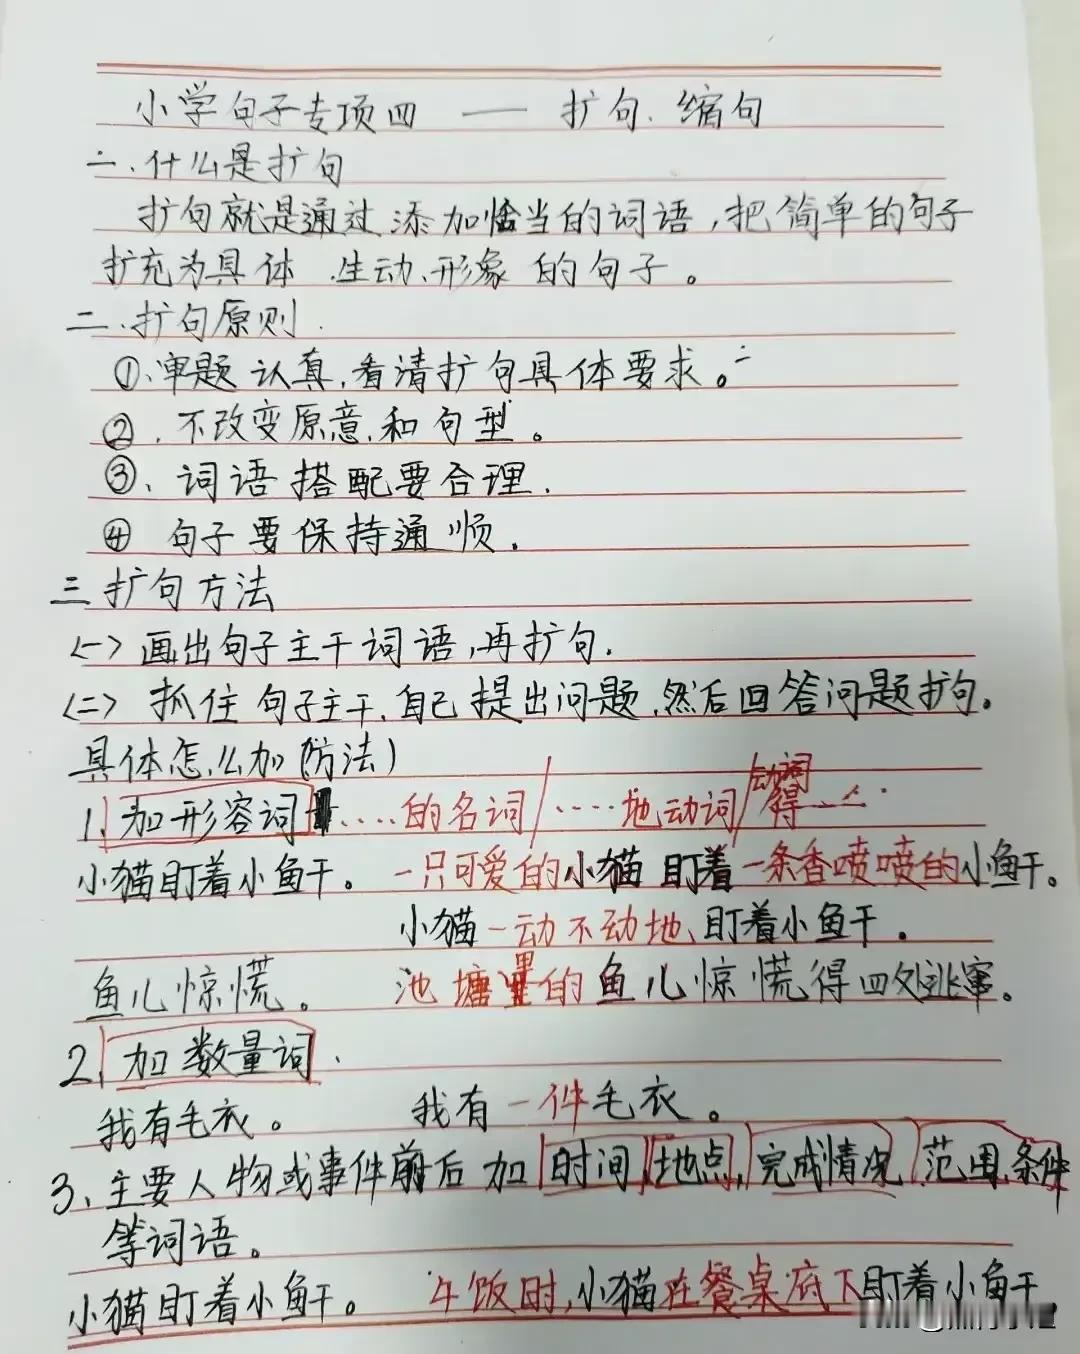 小学句子专项四 —— 扩句、缩句
一、什么是扩句
扩句就是通过添加恰当的词语,把简单的句子
扩充为具体、生动、形象的句子。
二、扩句原则
①、审题认真,看清扩句具体要求。
②、不改变原意和句型。
③、词语搭配要合理.
④ 句子要保持通顺.
三 扩句方法
<一> 画出句子主干词语,再扩句.
<二> 抓住句子主干,自己提出问题,然后回答问题扩句。
具体怎么加(方法)
1、加形容词 ....的名词/....地动词/动词得....
小猫盯着小鱼干。 一只可爱的小猫盯着一条香喷喷的小鱼干。
小猫一动不动地盯着小鱼干。
鱼儿惊慌。 池塘里的鱼儿惊慌得四处逃窜。
2、加数量词.
我有毛衣。 我有一件毛衣。
3、主要人物或事件前后加时间,地点,完成情况,范围,条件
等词语。
小猫盯着小鱼干。 午饭时,小猫在餐桌底下盯着小鱼干